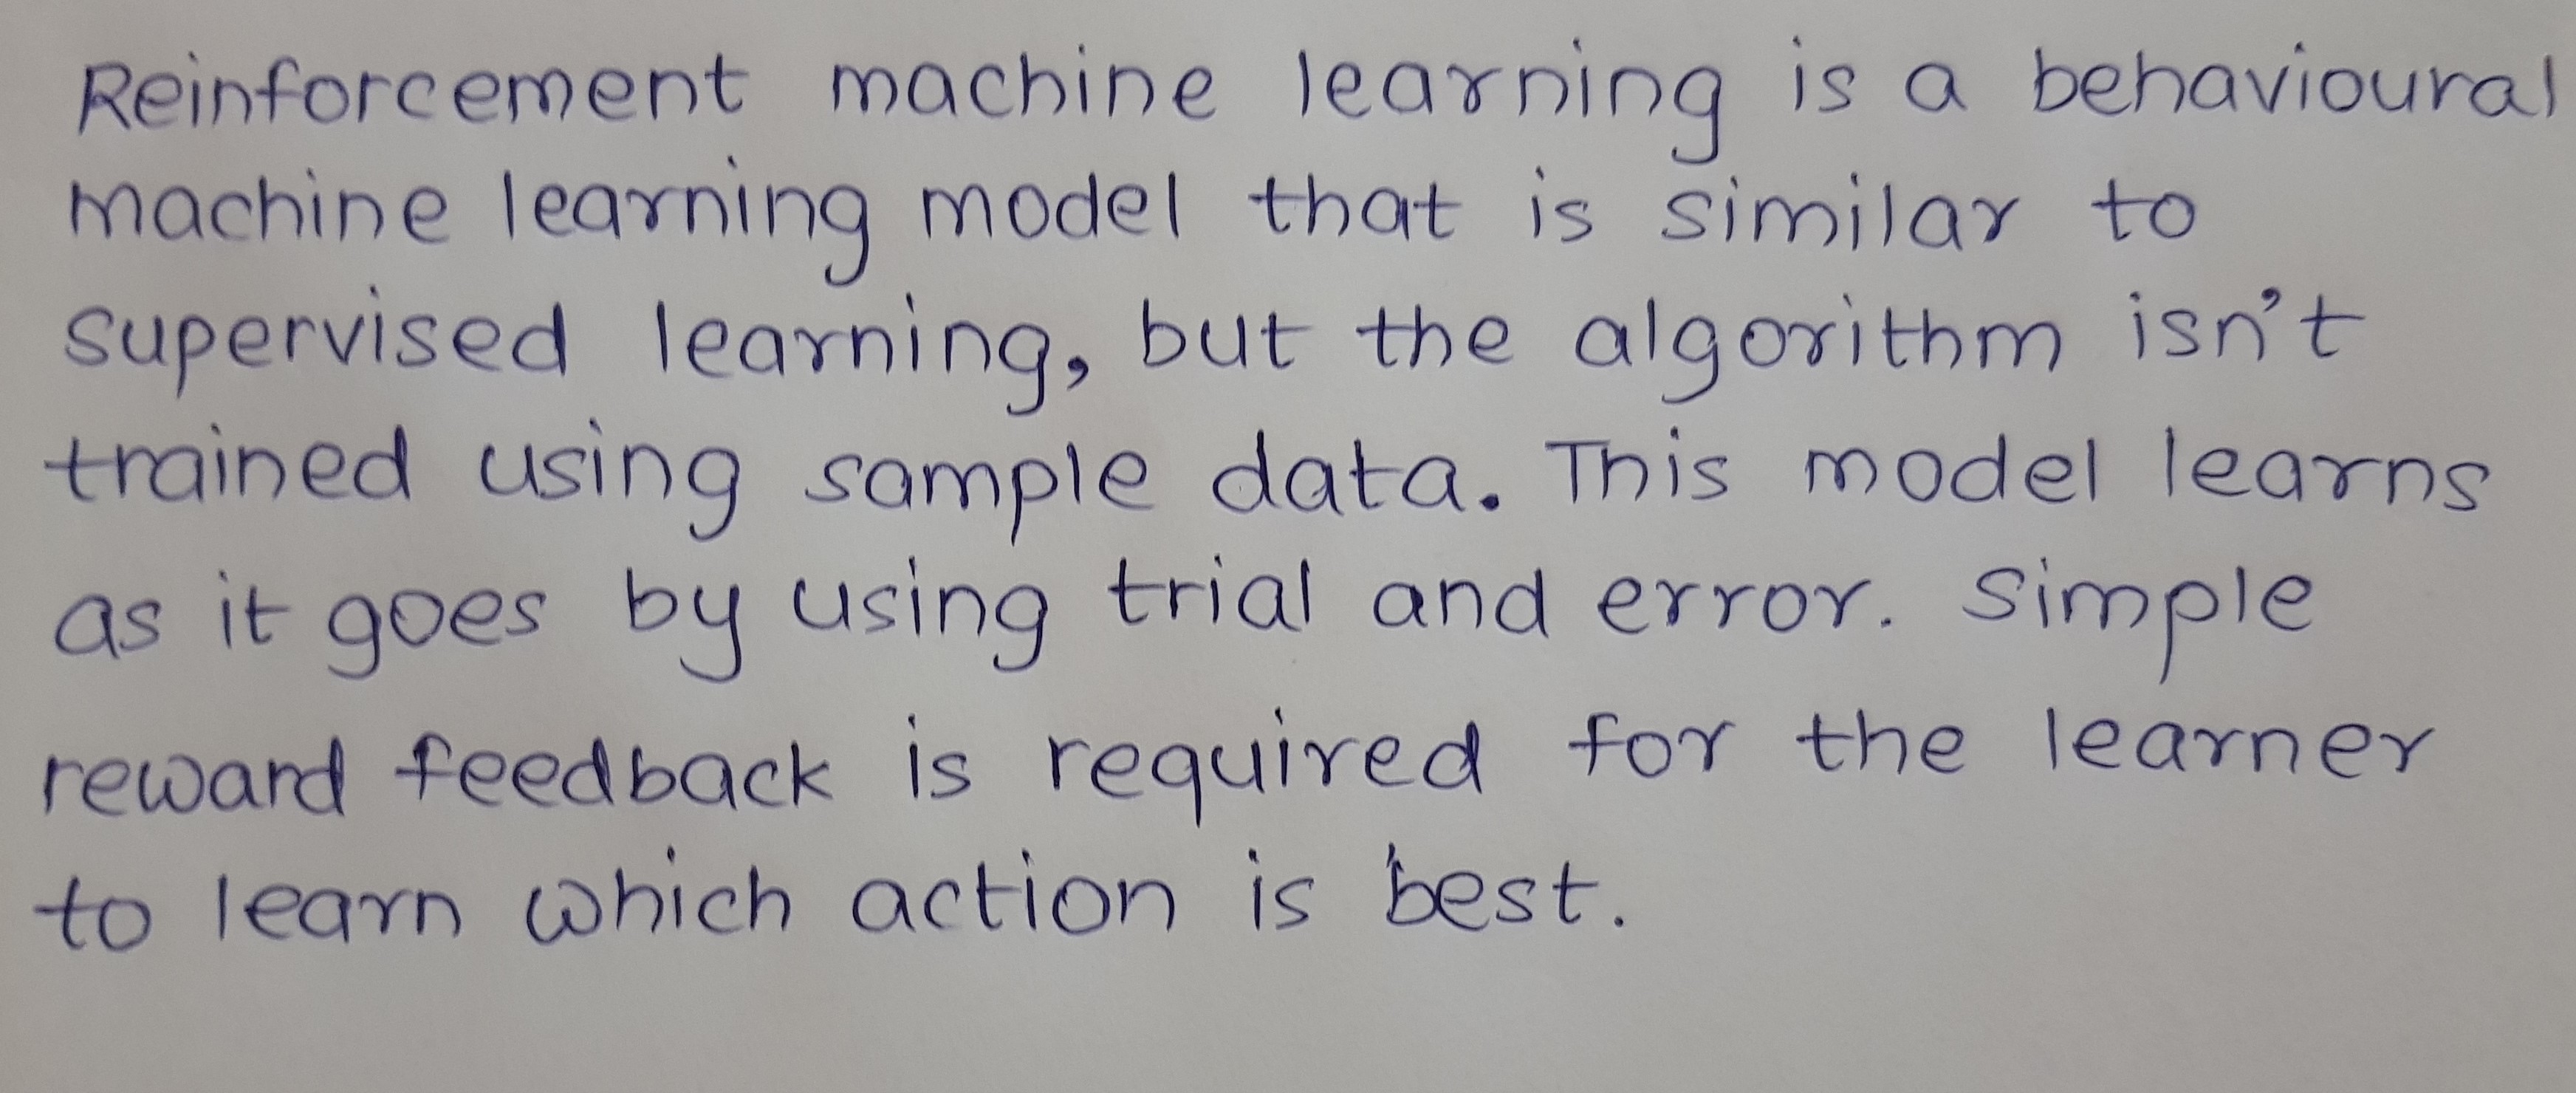 Reinforcement machine learning is a behavioural
machine learning model that is similar to
supervised learning, but the algorithm isn't
trained using sample data. This model learns
as it goes by using trial and error. Simple
reward feedback is required for the learner
to learn which action is best.